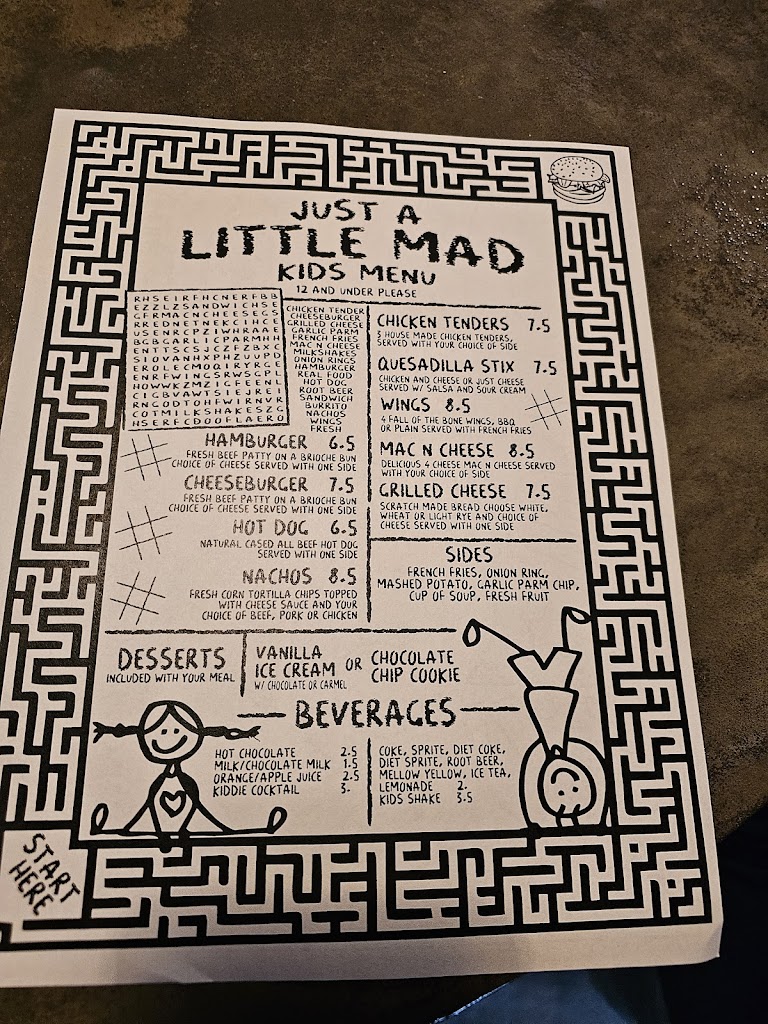 JUST A
LITTLE MAD
KIDS MENU
12 AND UNDER PLEASE
R H S E I R F H C N E R F B B
E Z Z L Z S A N D W I C H S E
G F R M A C N C H E E S E G S
R R E D N E T N E K C I H C E
U S E N R C P Z I W H R A A E
B G B G A R L I C P A R M H H
E N T T S C S J C Z F Z B X C
S I O V A N H X P H Z U U P D
E R O L E C M O Q I R Y R G E
E N R F W I N G S R W S G P L
H O W W K Z M Z I G F E E N L
C I G B V A W T S I E J R E I
R N G O D T O H F W I R N V R
C O T M I L K S H A K E S Z G
H S E R F C D O O F L A E R O
CHICKEN TENDER
CHEESEBURGER
GRILLED CHEESE
GARLIC PARM
FRENCH FRIES
MAC N CHEESE
MILKSHAKES
ONION RINGS
HAMBURGER
REAL FOOD
HOT DOG
ROOT BEER
SANDWICH
BURRITO
NACHOS
WINGS
FRESH
HAMBURGER 6.5
FRESH BEEF PATTY ON A BRIOCHE BUN
CHOICE OF CHEESE SERVED WITH ONE SIDE
CHEESEBURGER 7.5
FRESH BEEF PATTY ON A BRIOCHE BUN
CHOICE OF CHEESE SERVED WITH ONE SIDE
HOT DOG 6.5
NATURAL CASED ALL BEEF HOT DOG
SERVED WITH ONE SIDE
NACHOS 8.5
FRESH CORN TORTILLA CHIPS TOPPED
WITH CHEESE SAUCE AND YOUR
CHOICE OF BEEF, PORK OR CHICKEN
CHICKEN TENDERS 7.5
3 HOUSE MADE CHICKEN TENDERS,
SERVED WITH YOUR CHOICE OF SIDE
QUESADILLA STIX 7.5
CHICKEN AND CHEESE OR JUST CHEESE
SERVED W/ SALSA AND SOUR CREAM
WINGS 8.5
4 FALL OF THE BONE WINGS, BBQ
OR PLAIN SERVED WITH FRENCH FRIES
MAC N CHEESE 8.5
DELICIOUS 4 CHEESE MAC N CHEESE SERVED
WITH YOUR CHOICE OF SIDE
GRILLED CHEESE 7.5
SCRATCH MADE BREAD CHOOSE WHITE,
WHEAT OR LIGHT RYE AND CHOICE OF
CHEESE SERVED WITH ONE SIDE
SIDES
FRENCH FRIES, ONION RING,
MASHED POTATO, GARLIC PARM CHIP,
CUP OF SOUP, FRESH FRUIT
DESSERTS
INCLUDED WITH YOUR MEAL
VANILLA
ICE CREAM
W/ CHOCOLATE OR CARMEL
OR
CHOCOLATE
CHIP COOKIE
BEVERAGES
HOT CHOCOLATE 2.5
MILK/CHOCOLATE MILK 1.5
ORANGE/APPLE JUICE 2.5
KIDDIE COCKTAIL 3.
COKE, SPRITE, DIET COKE,
DIET SPRITE, ROOT BEER,
MELLOW YELLOW, ICE TEA,
LEMONADE 2.
KIDS SHAKE 3.5
START
HERE